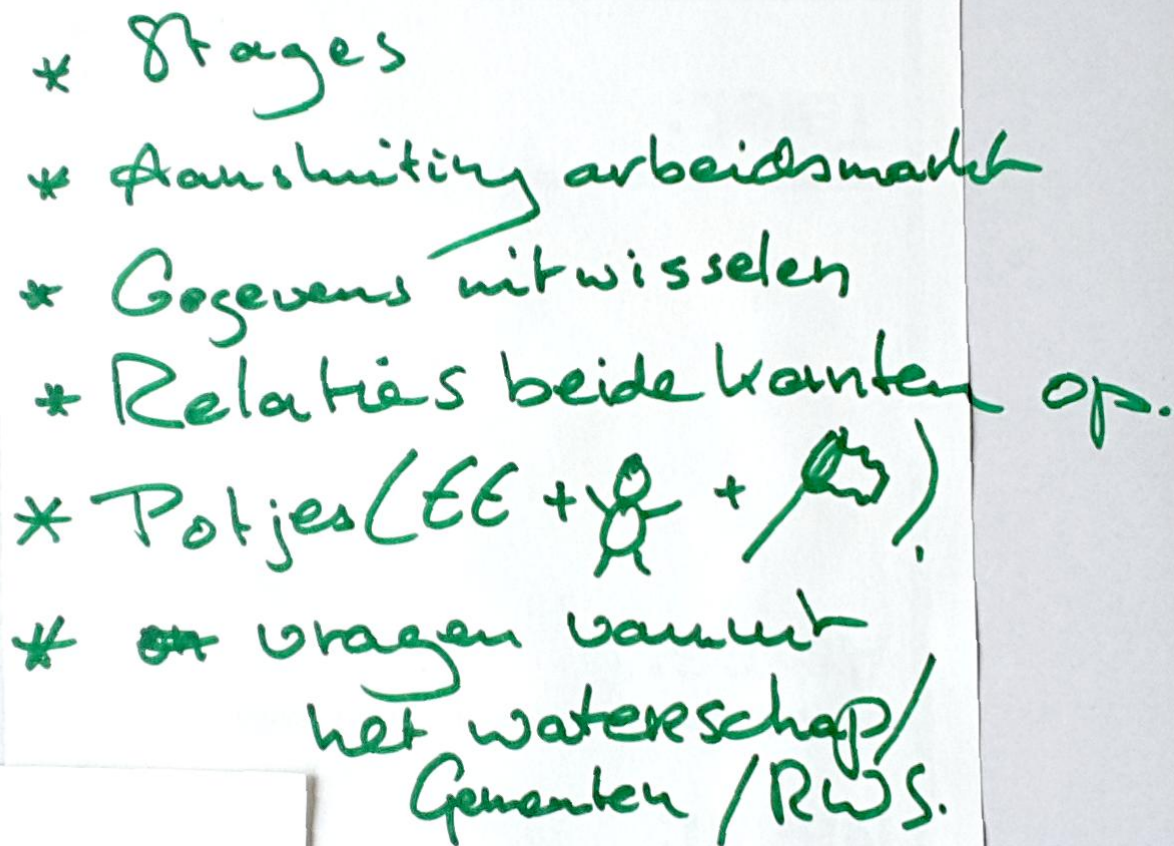 * Stages
* Aansluiting arbeidsmarkt
* Gegevens uitwisselen
* Relaties beide kanten op.
* Potjes (€€ + + )
* vragen vanuit
het waterschap/
Gemeenten / RWS.